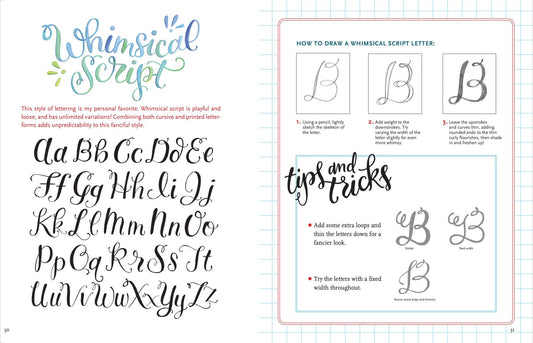 Whimsical
Script
This style of lettering is my personal favorite. Whimsical script is playful and
loose, and has unlimited variations! Combining both cursive and printed letter-
forms adds unpredictability to this fanciful style.
Aa Bb Cc Dd Ee
Ff Gg Hh Ii Jj
Kk Ll Mm Nn Oo
Pp Qq Rr Ss Tt
Uu Vv Ww Xx Yy Zz
30
HOW TO DRAW A WHIMSICAL SCRIPT LETTER:
B
B
B
1. Using a pencil, lightly
sketch the skeleton of
the letter.
2. Add weight to the
downstrokes. Try
varying the width of the
letter slightly for even
more whimsy.
3. Leave the upstrokes
and curves thin, adding
rounded ends to the thin
curly flourishes, then shade
in and freshen up!
tips and
tricks
• Add some extra loops and
thin the letters down for a
fancier look.
B
B
fixed width
• Try the letters with a fixed
width throughout.
B
31